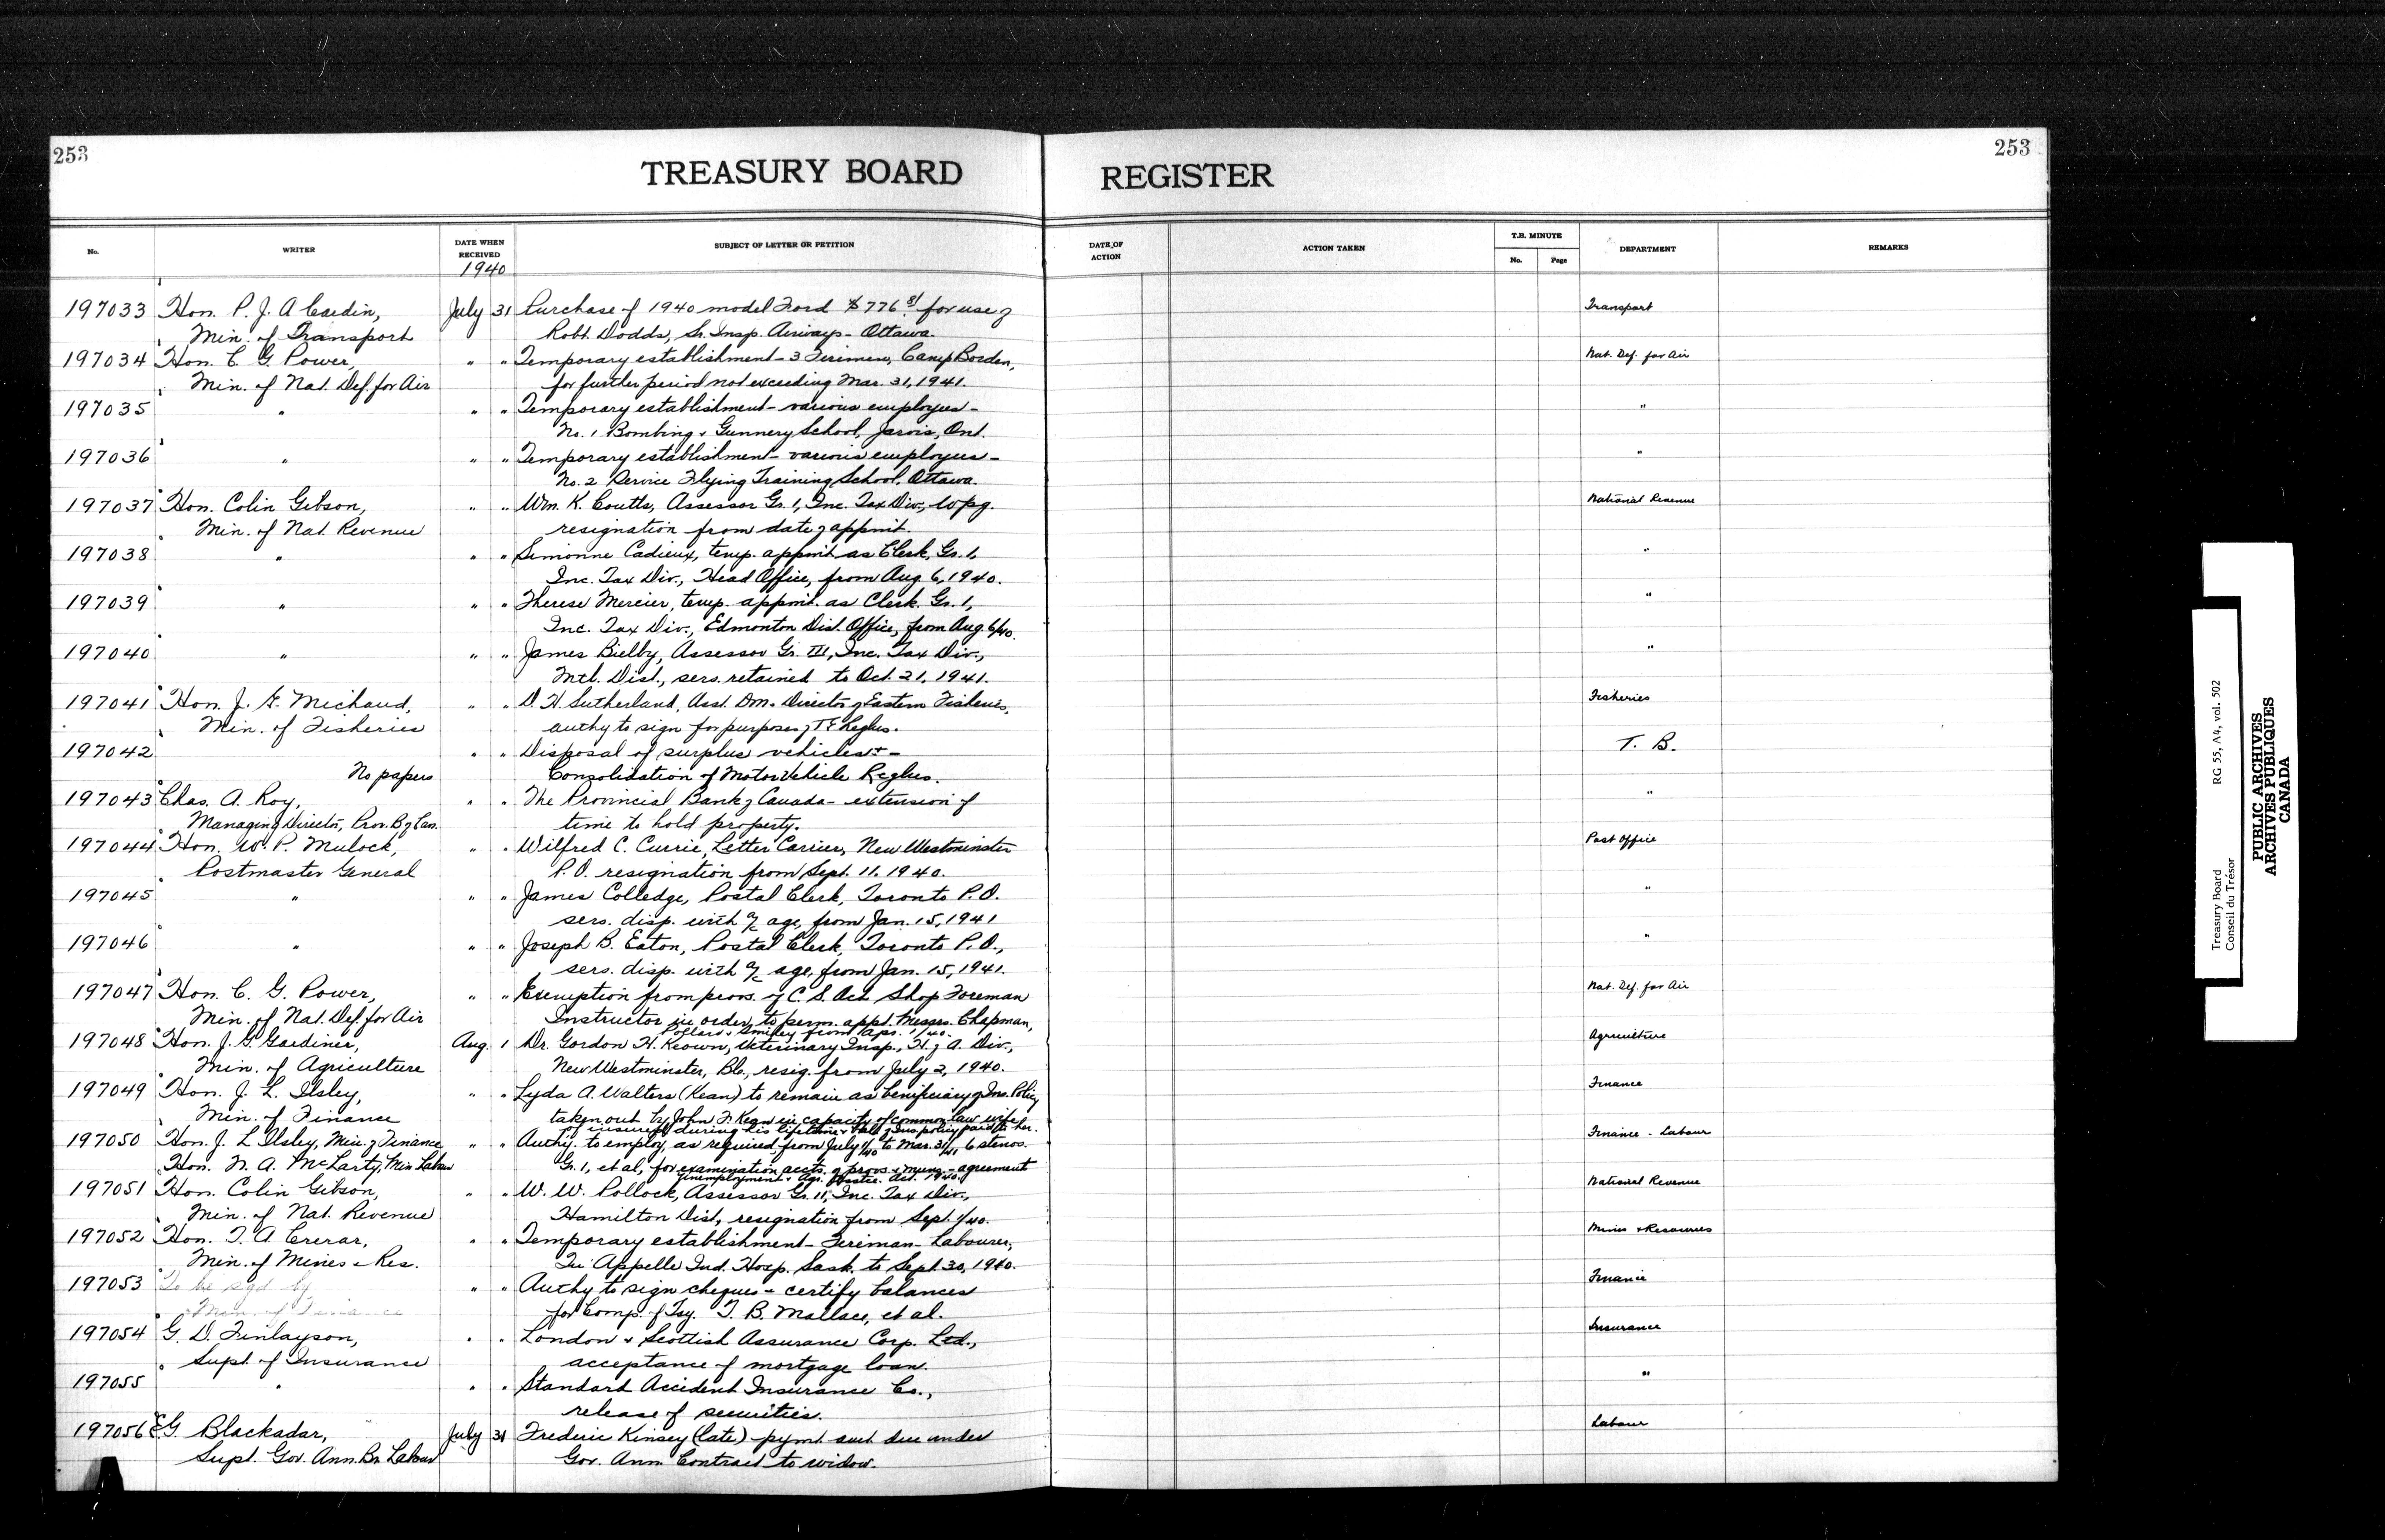 253
253
TREASURY BOARD REGISTER
No.
WRITER
DATE WHEN RECEIVED
1940
SUBJECT OF LETTER OR PETITION
DATE OF ACTION
ACTION TAKEN
T.B. MINUTE
No.
Page
DEPARTMENT
REMARKS
197033 Hon. P. J. A Cardin, July 31 Purchase of 1940 model Ford $776.81 for use of Transport
Min. of Transport Robt. Dodds, Sr. Insp. Airways - Ottawa.
197034 Hon. C. G. Power, " " Temporary establishment - 3 Firemen, Camp Borden, Nat. Def. for Air
Min. of Nat. Def. for Air for further period not exceeding Mar. 31, 1941.
197035 " " " Temporary establishment - various employees - "
No. 1 Bombing & Gunnery School, Jarvis, Ont.
197036 " " " Temporary establishment - various employees - "
No. 2 Service Flying Training School, Ottawa.
197037 Hon. Colin Gibson, " " Wm. K. Coutts, Assessor Gr. 1, Inc. Tax Div., Wpg. National Revenue
Min. of Nat. Revenue resignation from date of appmt.
197038 " " " Simonne Cadieux, temp. appmt. as Clerk, Gr. 1, "
Inc. Tax Div., Head Office, from Aug 6, 1940.
197039 " " " Therese Mercier, temp. appmt. as Clerk. Gr. 1, "
Inc. Tax Div., Edmonton Dist. Office, from Aug. 6/40.
197040 " " " James Bielby, Assessor Gr. III, Inc. Tax Div., "
Mtl. Dist., sers. retained to Oct. 21, 1941.
197041 Hon. J. E. Michaud, " " D. H. Sutherland, Asst. Director of Eastern Fisheries, Fisheries
Min. of Fisheries authy to sign for purposes of T.E. Reglns.
197042 " " Disposal of surplus vehicles & - T. B.
No papers Consolidation of Motor Vehicle Reglns.
197043 Chas. A. Roy, " " The Provincial Bank of Canada - extension of "
Managing Director, Prov. B of Can. time to hold property.
197044 Hon. W. P. Mulock, " " Wilfred C. Currie, Letter Carrier, New Westminster Post Office
Postmaster General P.O. resignation from Sept. 11, 1940.
197045 " " " James Colledge, Postal Clerk, Toronto P.O. "
sers. disp. with a/c age, from Jan. 15, 1941
197046 " " " Joseph B. Eaton, Postal Clerk, Toronto P.O., "
sers. disp. with a/c age, from Jan. 15, 1941.
197047 Hon. C. G. Power, " " Exemption from provs. of C. S. Act Shop Foreman Nat. Def. for Air
Min. of Nat. Def. for Air Instructor in order to perm. appt. Messrs. Chapman,
Pollard & Smiley from Apr. 1/40.
197048 Hon. J. G. Gardiner, Aug. 1 Dr. Gordon H. Keown, Veterinary Insp., H. of A. Div., Agriculture
Min. of Agriculture New Westminster, B.C., resig. from July 2, 1940.
197049 Hon. J. L. Ilsley, " " Lyda A. Walters (Kean) to remain as beneficiary of Ins. Policy Finance
Min. of Finance taken out by John F. Kean in capacity of common law wife
of insured during his lifetime & of Ins. policy paid to her.
197050 Hon. J. L Ilsley, Min. of Finance " " Authy. to employ, as required, from July 1/40 to Mar. 31/41, 6 stenos. Finance - Labour
Hon. N. A. McLarty, Min Labour Gr. 1, et al, for examination accts. of provs. & muns. - agreement
Unemployment & Agr. Asstce. Act. 1940.
197051 Hon. Colin Gibson, " " W. W. Pollock, Assessor Gr. 11, Inc. Tax Div., National Revenue
Min. of Nat. Revenue Hamilton Dist., resignation from Sept. 1/40.
197052 Hon. T. A. Crerar, " " Temporary establishment - Fireman - Labourer, Mines & Resources
Min. of Mines & Res. Qu'Appelle Ind. Hosp. Sask. to Sept. 30, 1940.
197053 To be sgd by " " Authy to sign cheques & certify balances Finance
Min. of Finance for Comp. of Tsy. T. B. Mallace, et al.
197054 G. D. Finlayson, " " London & Scottish Assurance Corp. Ltd., Insurance
Supt. of Insurance acceptance of mortgage loan.
197055 " " " Standard Accident Insurance Co., "
release of securities.
197056 E.G. Blackadar, July 31 Frederic Kinsey (late) - pymt amt. due under Labour
Supt. Gov. Ann. Br. Labour Gov. Ann. Contract to widow.
Treasury Board RG 55, A4, vol. 502
Conseil du Trésor
PUBLIC ARCHIVES
ARCHIVES PUBLIQUES
CANADA